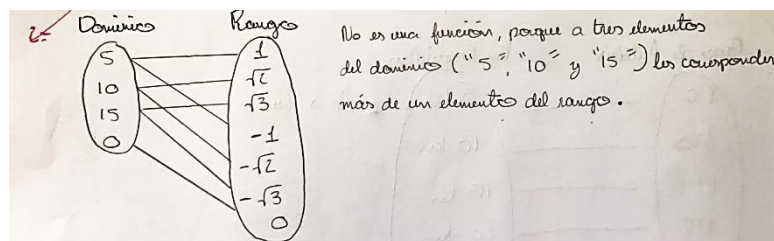 Dominio Rango
5
10
15
0
1
√2
√3
-1
-√2
-√3
0
No es una función, porque a tres elementos
del dominio ("5", "10" y "15") les corresponden
más de un elemento del rango.